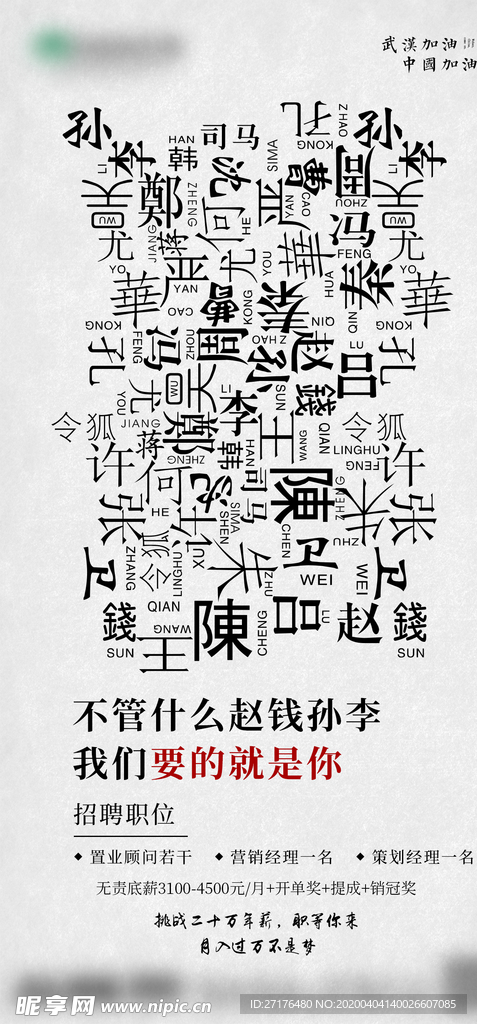 武漢加油
中國加油
孙 李 韩 HAN 司马 SIMA 孔 KONG ZHAO 孙 李
LI 吴 WU 鄭 ZHENG 沈 何 HE 严 YAN 曹 CAO 周 ZHOU 冯 FENG 吴 WU
尤 YO 蒋 JIANG 严 YAN 尤 YOU 華 HUA 秦 QIN 尤 YO
華 曹 CAO KONG ZHAO QIN 赵 華
KONG 孔 FENG 冯 ZHOU 周 孙 SUN 吕 LU KONG 孔
尤 YOU 吴 WU 李 LI 錢 QIAN
令狐 JIANG 蒋 鄭 ZHENG 韩 HAN 王 WANG 令狐 LINGHU
许 何 HE 沈 SHEN 司马 SIMA 陳 CHEN ZHENG 朱 ZHU FENG 许
张 ZHANG 令狐 LINGHU 许 XU 朱 ZHU 卫 WEI 张
卫 WEI 卫
錢 QIAN 陳 CHENG 吕 LU 赵 錢
SUN WANG 王 SUN
不管什么赵钱孙李
我们要的就是你
招聘职位
◆ 置业顾问若干 ◆ 营销经理一名 ◆ 策划经理一名
无责底薪3100-4500元/月+开单奖+提成+销冠奖
挑战二十万年薪，职等你来
月入过万不是梦
昵享网 www.nipic.cn
ID:27176480 NO:20200404140026607085